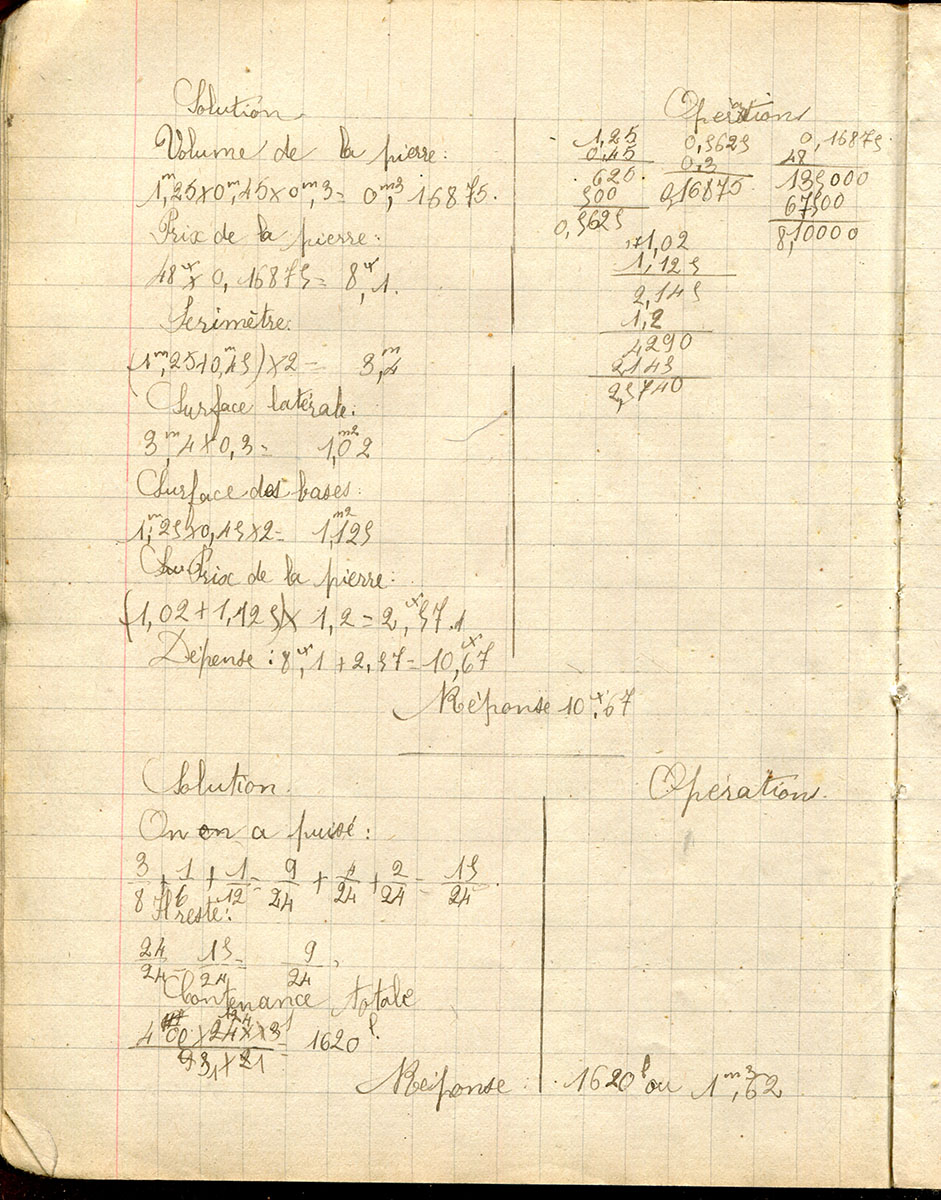 Solution
Volume de la pierre:
1,m25 x 0,m45 x 0,m3 = 0,m3 16875.
Prix de la pierre:
48f x 0,16875 = 8f,1.
Perimètre:
(1m,25 + 0,m45) x 2 = 3,m4
Surface latérale:
3,m4 x 0,3 = 1,m2 02
Surface des bases:
1,m25 x 0,45 x 2 = 1,m2 125
Prix de la pierre:
(1,02 + 1,125) x 1,2 = 2,f57.
Dépense: 8f,1 + 2,57 = 10,f67
Réponse 10f,67
Opération
1,25
0,45
620
500
0,5625
0,5625
0,3
0,16875
0,16875
48
135000
67500
8,10000
1,02
1,125
2,145
1,2
4290
2145
2,5740
Solution.
On en a puisé:
3/8 + 1/6 + 1/12 = 9/24 + 4/24 + 2/24 = 15/24.
Il reste:
24/24 - 15/24 = 9/24.
Contenance totale
1620l.
Réponse: 1620l ou 1m3,62
Opération.